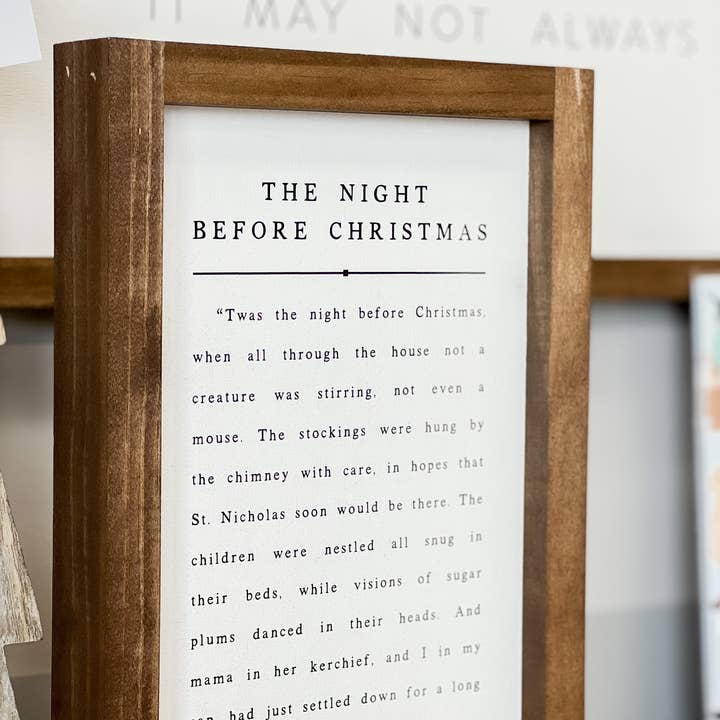 IT MAY NOT ALWAYS
THE NIGHT
BEFORE CHRISTMAS
“Twas the night before Christmas,
when all through the house not a
creature was stirring, not even a
mouse. The stockings were hung by
the chimney with care, in hopes that
St. Nicholas soon would be there. The
children were nestled all snug in
their beds, while visions of sugar
plums danced in their heads. And
mama in her kerchief, and I in my
had just settled down for a long